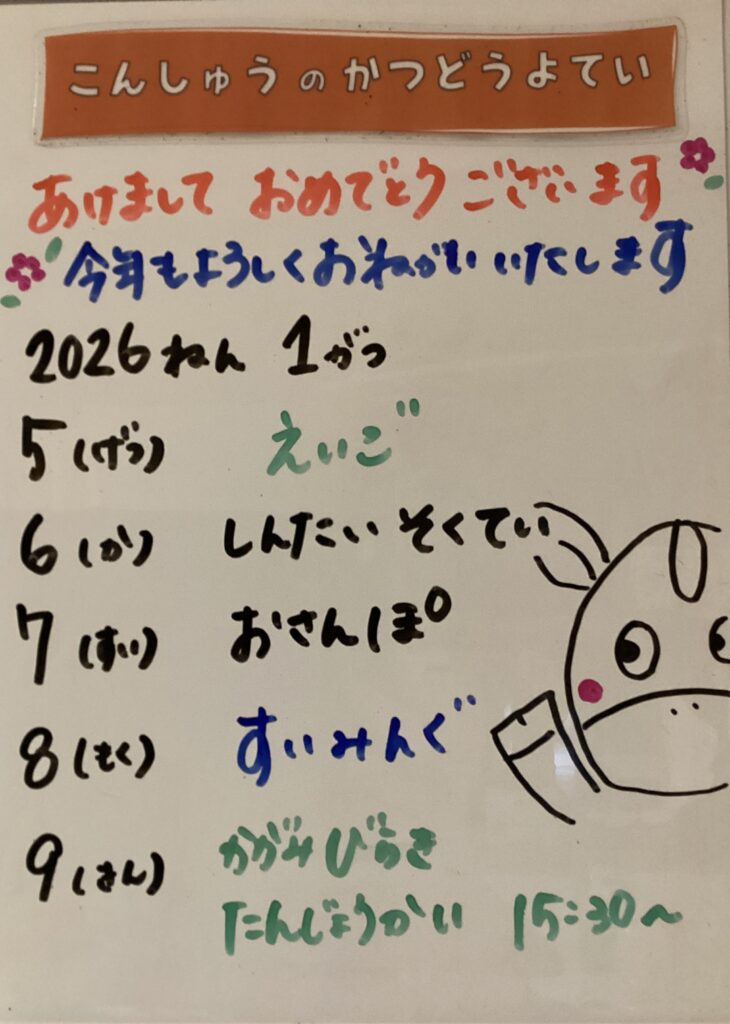 こんしゅうのかつどうよてい
あけまして おめでとう ございます
今年もよろしくおねがいいたします
2026ねん 1がつ
5(げつ) えいご
6(か) しんたいそくてい
7(すい) おさんぽ
8(もく) すいみんぐ
9(きん) かがみびらき
たんじょうかい 15:30～